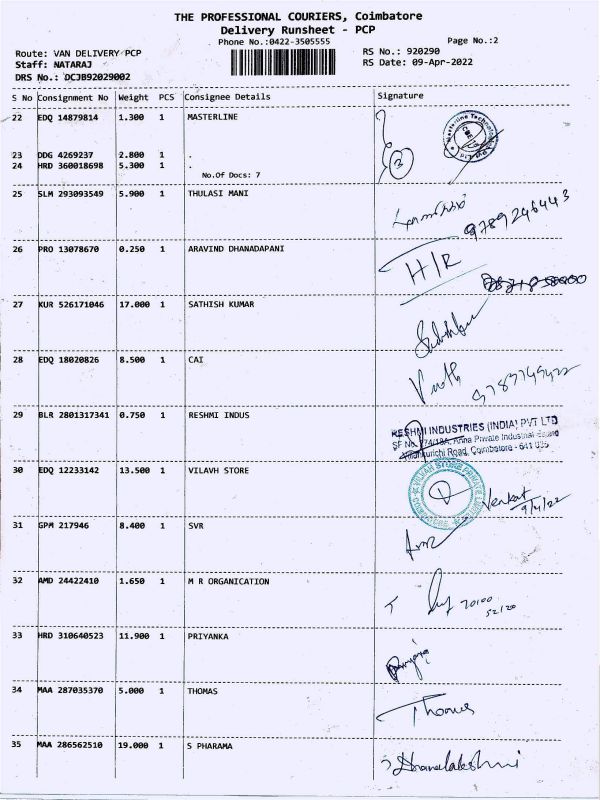 THE PROFESSIONAL COURIERS, Coimbatore
Delivery Runsheet - PCP
Phone No.:0422-3505555
Page No.:2
Route: VAN DELIVERY PCP
RS No.: 920290
Staff: NATARAJ
RS Date: 09-Apr-2022
DRS No.: DCJB92029002
S No Consignment No Weight PCS Consignee Details Signature
22 EDQ 14879814 1.300 1 MASTERLINE
23 DDG 4269237 2.800 1 .
24 HRD 360018698 5.300 1 .
3
No.Of Docs: 7
25 SLM 293093549 5.900 1 THULASI MANI
9789246443
26 PRO 13078670 0.250 1 ARAVIND DHANADAPANI
H/R
27 KUR 526171046 17.000 1 SATHISH KUMAR
28 EDQ 18020826 8.500 1 CAI
29 BLR 2801317341 0.750 1 RESHMI INDUS
RESHMI INDUSTRIES (INDIA) PVT LTD
Anna Private Industrial Estate
Road, Coimbatore - 641
30 EDQ 12233142 13.500 1 VILAVH STORE
Venkat
9/4/22
31 GPM 217946 8.400 1 SVR
32 AMD 24422410 1.650 1 M R ORGANICATION
33 HRD 310640523 11.900 1 PRIYANKA
34 MAA 287035370 5.000 1 THOMAS
Thomas
35 MAA 286562510 19.000 1 S PHARAMA
Dhanalakshmi